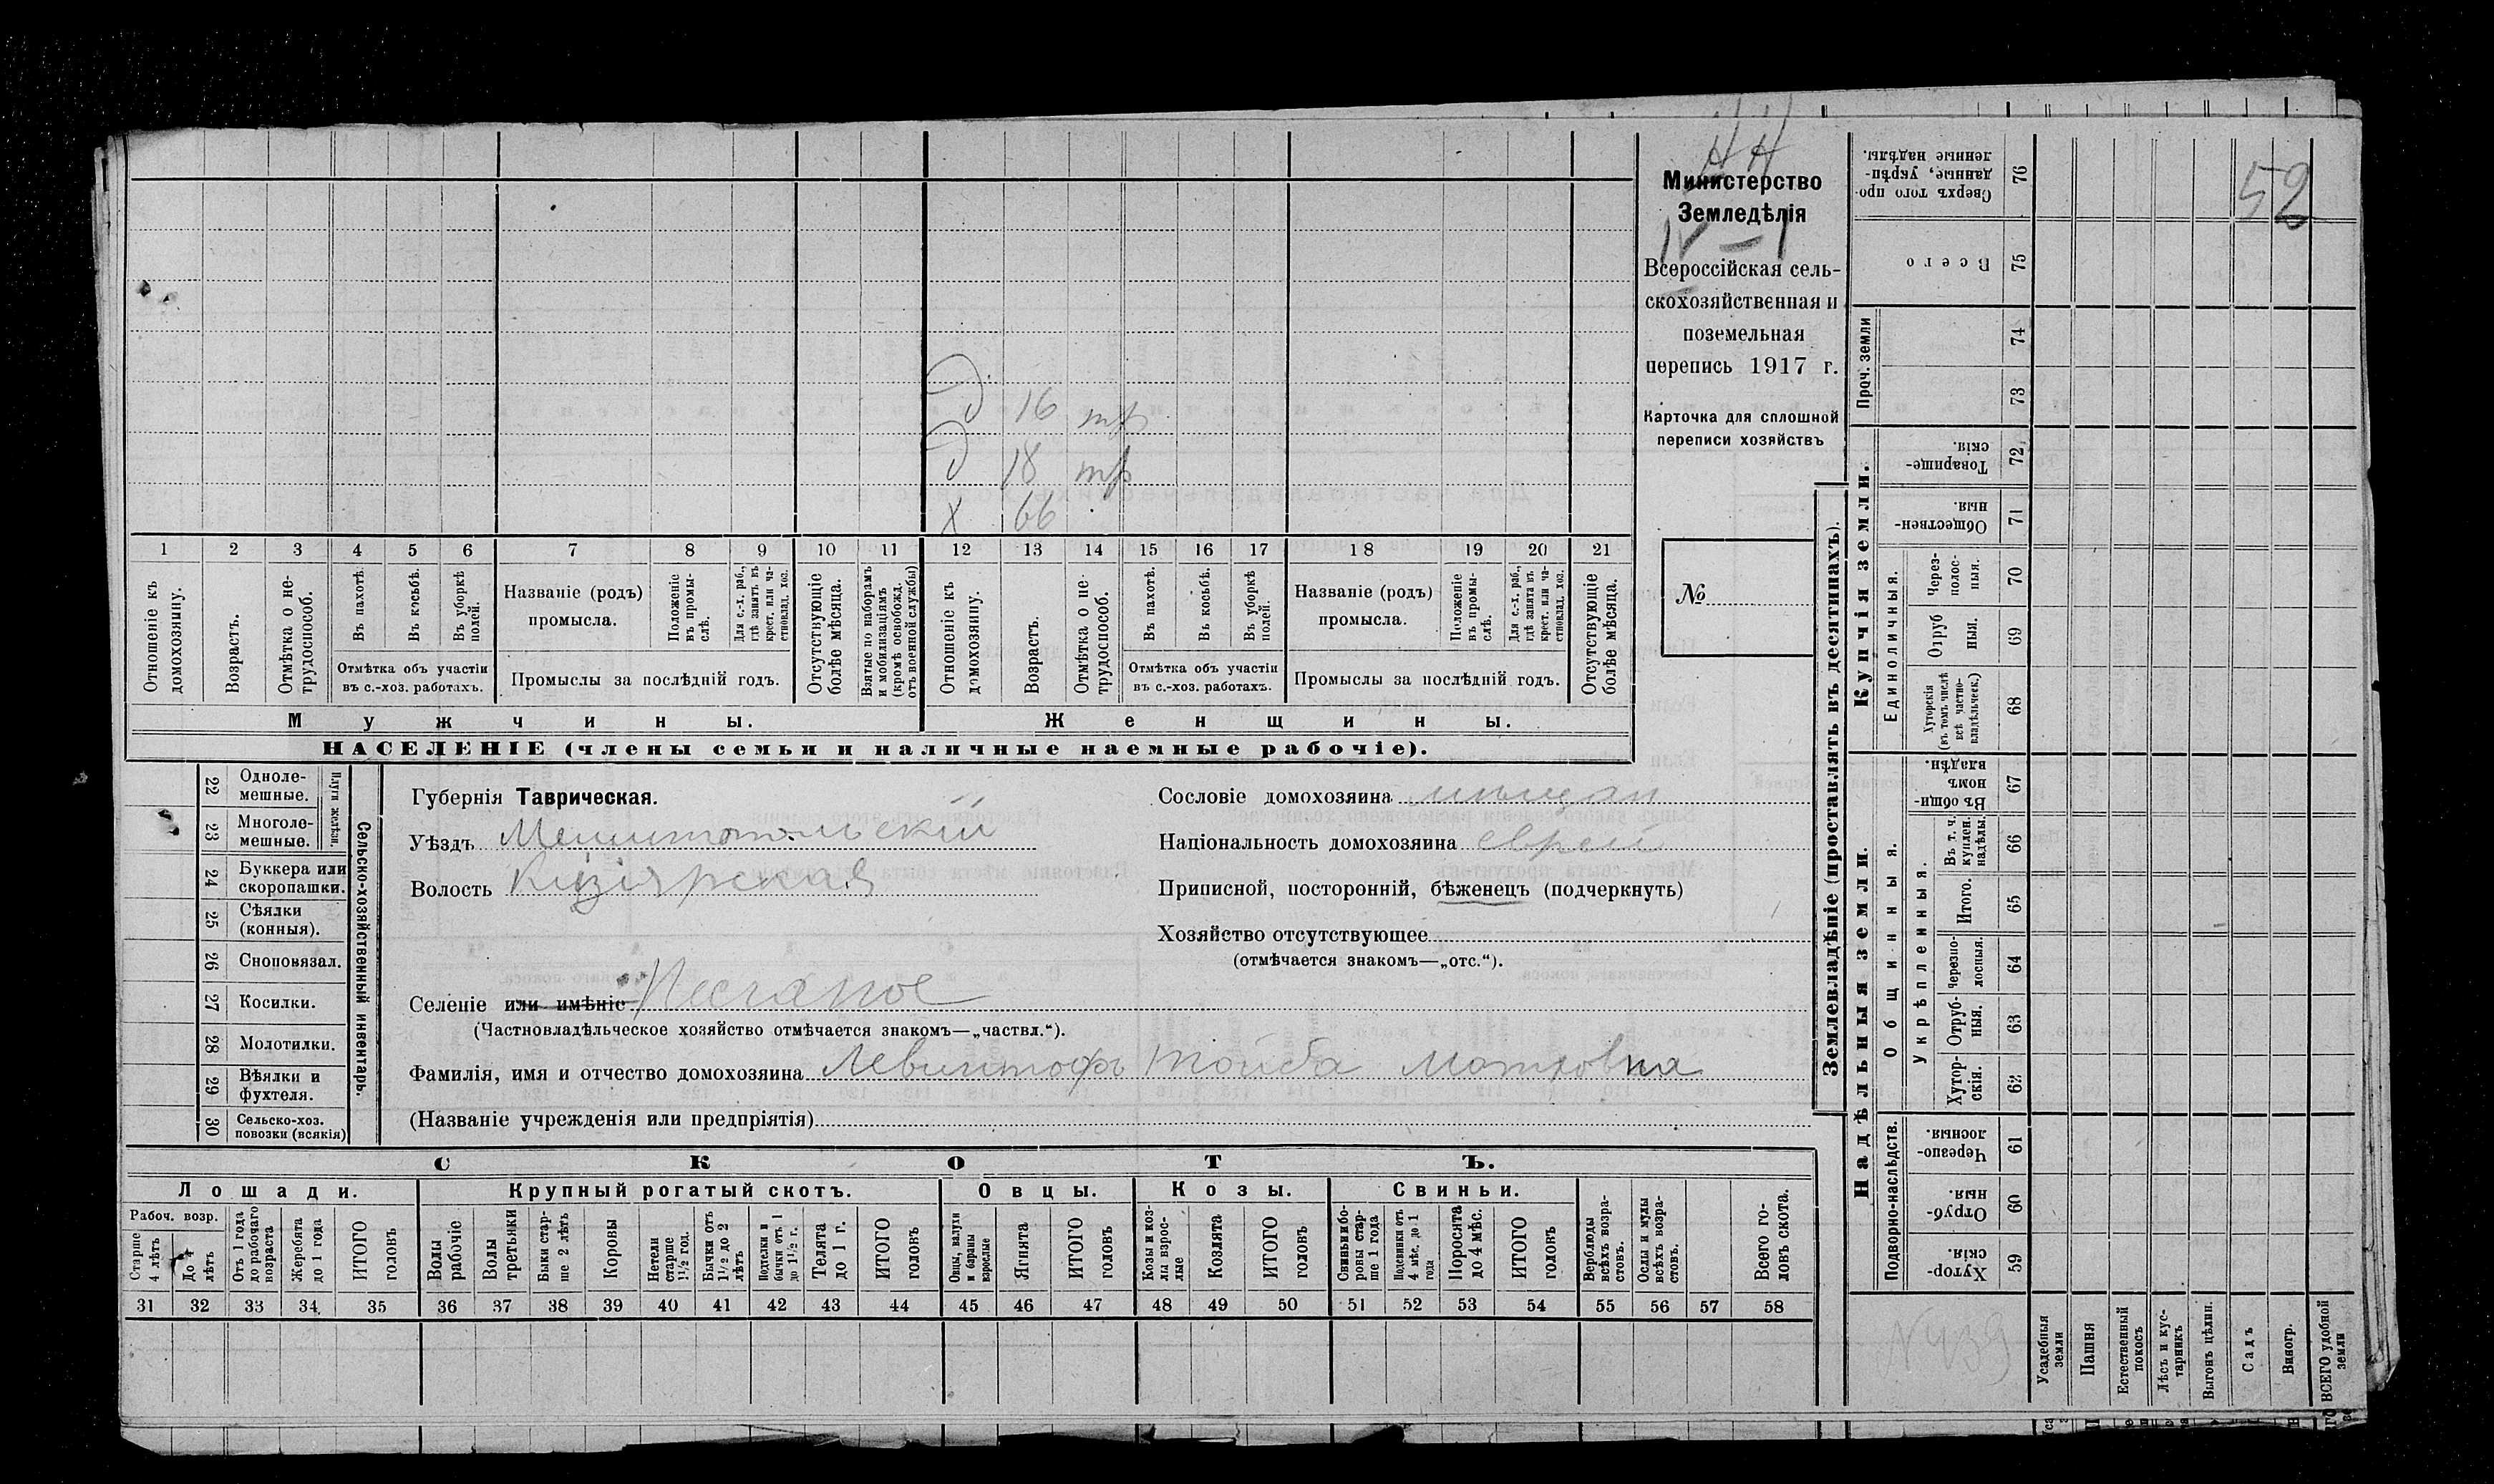 НН
Министерство
Земледѣлія
IV – 1
Всероссійская сель-
скохозяйственная и
поземельная
перепись 1917 г.
Карточка для сплошной
переписи хозяйствъ
№
52
д 16 тр
д 18 тр
х 66
1 2 3 4 5 6 7 8 9 10 11 12 13 14 15 16 17 18 19 20 21
Отношеніе къ домохозяину.
Возрастъ.
Отмѣтка о не-трудоспособ.
Въ пахотѣ.
Въ косьбѣ.
Въ уборкѣ полей.
Отмѣтка объ участіи
въ с.-хоз. работахъ.
Названіе (родъ)
промысла.
Положеніе въ промы-слѣ.
Для с.-х. раб., гдѣ занятъ въ крест. или ча-стновлад. хоз.
Промыслы за послѣдній годъ.
Отсутствующіе болѣе мѣсяца.
Взятые по наборамъ и мобилизаціямъ (кромѣ освобожд. отъ военной службы)
Отношеніе къ домохозяину.
Возрастъ.
Отмѣтка о не-трудоспособ.
Въ пахотѣ.
Въ косьбѣ.
Въ уборкѣ полей.
Отмѣтка объ участіи
въ с.-хоз. работахъ.
Названіе (родъ)
промысла.
Положеніе въ промы-слѣ.
Для с.-х. раб., гдѣ занята въ крест. или ча-стновлад. хоз.
Промыслы за послѣдній годъ.
Отсутствующіе болѣе мѣсяца.
Мужчины.
Женщины.
НАСЕЛЕНІЕ (члены семьи и наличные наемные рабочіе).
22 Одноле-мешные.
23 Многоле-мешные.
Плуги желѣзн.
24 Буккера или скоропашки.
25 Сѣялки (конныя).
26 Сноповязал.
27 Косилки.
28 Молотилки.
29 Вѣялки и фухтеля.
30 Сельско-хоз. повозки (всякія)
Сельско-хозяйственный инвентарь.
Губернія Таврическая.
Уѣздъ Мелитопольскій
Волость Кизіярская
Селеніе или имѣніе Песчаное
(Частновладѣльческое хозяйство отмѣчается знакомъ—„частвл.“).
Фамилія, имя и отчество домохозяина Левинтофъ Тойба Мотховна
(Названіе учрежденія или предпріятія)
Сословіе домохозяина мѣщан
Національность домохозяина еврей
Приписной, посторонній, бѣженецъ (подчеркнуть)
Хозяйство отсутствующее
(отмѣчается знакомъ—„отс.“).
СКОТЪ.
Лошади.
Крупный рогатый скотъ.
Овцы.
Козы.
Свиньи.
Рабоч. возр.
Старше 4 лѣтъ
До 4 лѣтъ
Отъ 1 года до рабочаго возраста
Жеребята до 1 года
ИТОГО головъ
Волы рабочіе
Волы третьяки
Быки стар-ше 2 лѣтъ
Коровы
Нетели старше 1½ год.
Бычки отъ 1½ до 2 лѣтъ
Подтелки и бычки отъ 1 до 1½ г.
Телята до 1 г.
ИТОГО головъ
Овцы, валухи и бараны взрослые
Ягнята
ИТОГО головъ
Козы и коз-лы взрос-лые
Козлята
ИТОГО головъ
Свиньи и бо-ровы стар-ше 1 года
Подсвинки отъ 4 мѣс. до 1 года
Поросята до 4 мѣс.
ИТОГО головъ
Верблюды всѣхъ возра-стовъ.
Ослы и мулы всѣхъ возра-стовъ.
Всего го-ловъ скота.
31 32 33 34 35 36 37 38 39 40 41 42 43 44 45 46 47 48 49 50 51 52 53 54 55 56 57 58
Землевладѣніе (проставлять въ десятинахъ).
Надѣльныя земли.
Купчія земли.
Проч. земли
Подворно-наслѣдств.
Общинныя.
Укрѣпленныя.
Единоличныя.
Сверхъ того про-данные, укрѣп-ленные надѣлы. 76
Всего 75
74
73
Товарище-скія. 72
Обществен-ныя. 71
Через-полос-ныя. 70
Отруб-ныя. 69
Хуторскія (въ томъ числѣ всѣ частно-владѣльческ.) 68
Въ общи-номъ владѣн. 67
Въ т. ч. куплен. надѣлы. 66
Итого. 65
Черезпо-лосныя. 64
Отруб-ныя. 63
Хутор-скія. 62
Черезпо-лосныя. 61
Отруб-ныя. 60
Хутор-скія. 59
N 439
Усадебныя земли
Пашня
Естественный покосъ
Лѣсъ и кус-тарникъ
Выгонъ цѣлин.
Садъ
Виногр.
ВСЕГО удобной земли